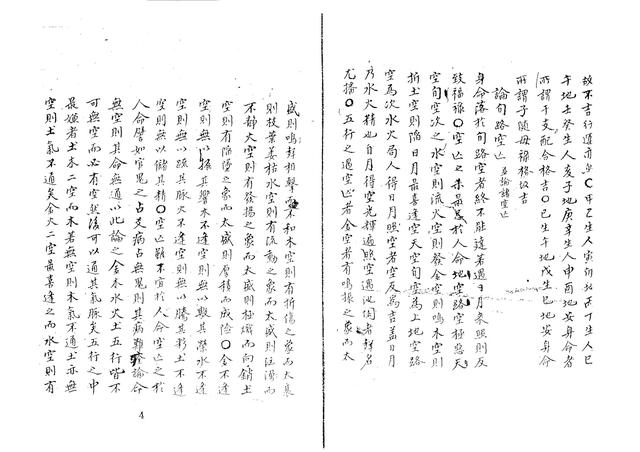 故不吉行運亦然〇甲乙生人寅卯地丙丁生人巳
午地壬癸生人亥子地庚辛生人申酉地安身命者
所謂干支配合格吉〇己生午地戊生巳地安身命
所謂子随母福格仅吉
論旬路空亡 五論諸空亡
身命落於旬路空者終不能達若遇日月来照則反
致福禄〇空亡之杀最忌於人命地空路空極惡天
空旬空次之水空則流火空則發金空則鳴木空則
折土空則陷日月最喜逢空天空旬空為上地空路
空為次水火局人得日月照空者空反為吉盖日月
乃水火精也日月得空光揮遍照空過池囚者封名
尤播〇五行之遇空亡者金空者有鳴振之象而太
盛則鳴封相擊而不和木空則有折傷之象而太衰
則枝葉萎枯水空則有流動之象而太盛則狂漠而
不静火空則有發揚之象而太盛則極熾而向銷土
空則有陷墜之象而太盛則厚積而成險〇金不逢
空則無以振其響木不逢空則無以敷其榮水不逢
空則無以疏其脉火不逢空則無以騰其彩土不逢
空則無以儲其精〇空亡雖不宜於人命空亡之於
人命譬如官鬼之占爻病占無鬼則其病難論命
無空則其命無通以此論之金木水火土五行皆不
可無空而必有空然後可以通其氣脉矣五行之中
最嫌者土木二空而木若無空則木氣不通土亦無
空則土氣不通矣金火二空最喜逢之而水空則有
4